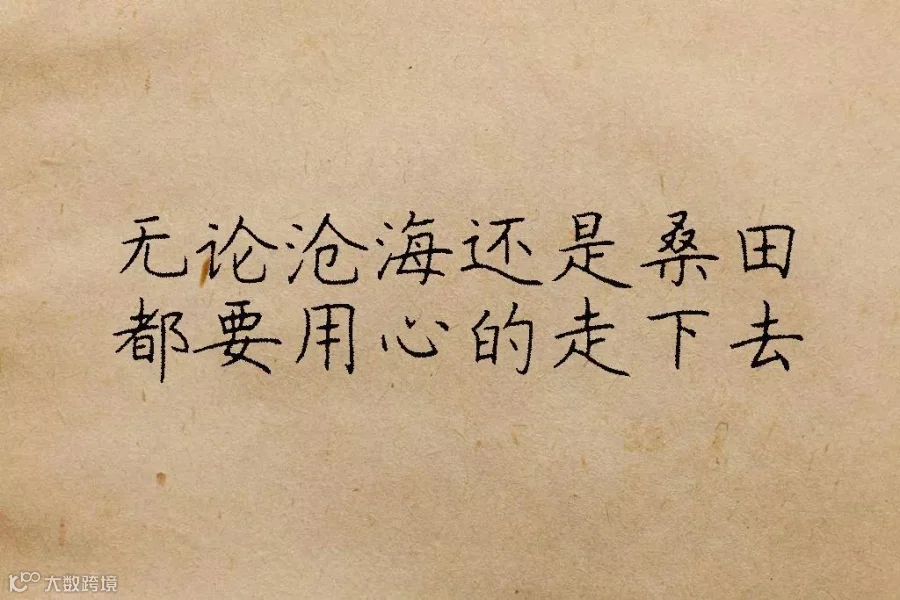 无论沧海还是桑田
都要用心的走下去
大数跨境